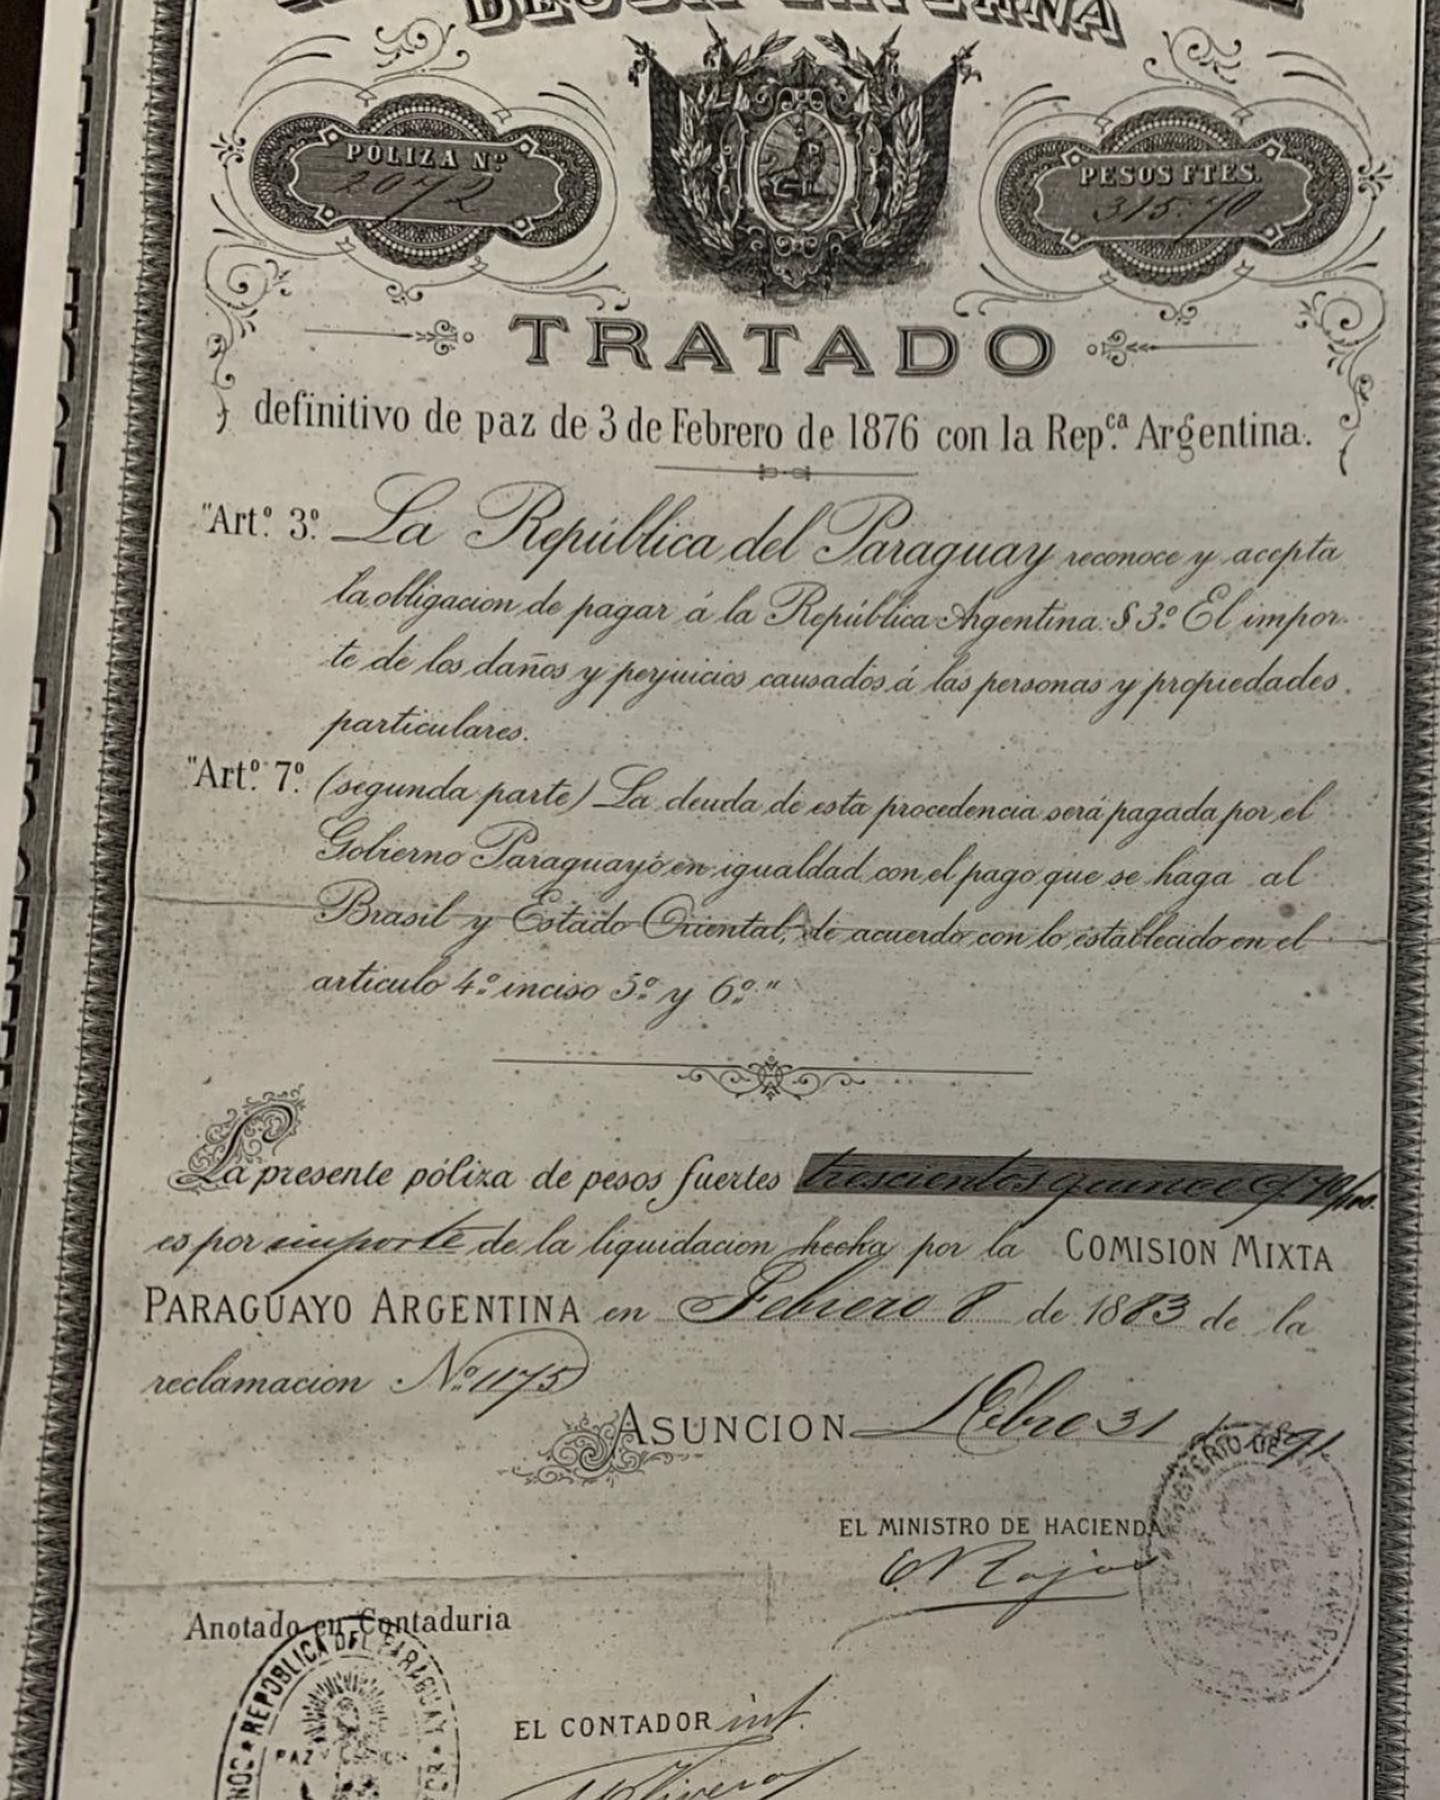 POLIZA Nº
2072
PESOS FTES.
315.70
TRATADO
definitivo de paz de 3 de Febrero de 1876 con la Rep.ca Argentina.
"Artº. 3º. La República del Paraguay reconoce y acepta
la obligacion de pagar á la República Argentina: § 3º. El impor-
te de los daños y perjuicios causados á las personas y propiedades
particulares.
"Artº. 7º. (segunda parte) La deuda de esta procedencia será pagada por el
Gobierno Paraguayo en igualdad con el pago que se haga al
Brasil y Estado Oriental, de acuerdo con lo establecido en el
articulo 4º. inciso 5º. y 6º."
La presente póliza de pesos fuertes trescientos quince c/. 70/100.
es por importe de la liquidacion hecha por la COMISION MIXTA
PARAGUAYO ARGENTINA en Febrero 8 de 1883 de la
reclamacion Nº. 1175
ASUNCION Dcbre 31 1891
MINISTERIO DE
EL MINISTRO DE HACIENDA
Anotado en Contaduria
REPUBLICA DEL PARAGUAY
PAZ Y
EL CONTADOR int.